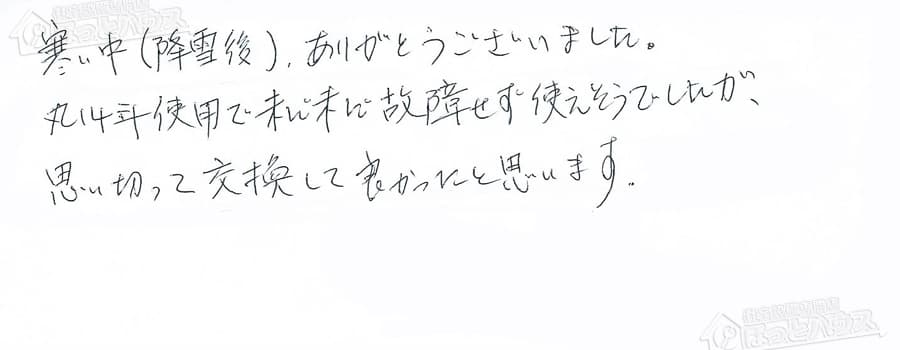 寒い中(降雪後)、ありがとうございました。
丸14年使用で未だ未だ故障せず使えそうでしたが、
思い切って交換して良かったと思います。
ほっとハウス